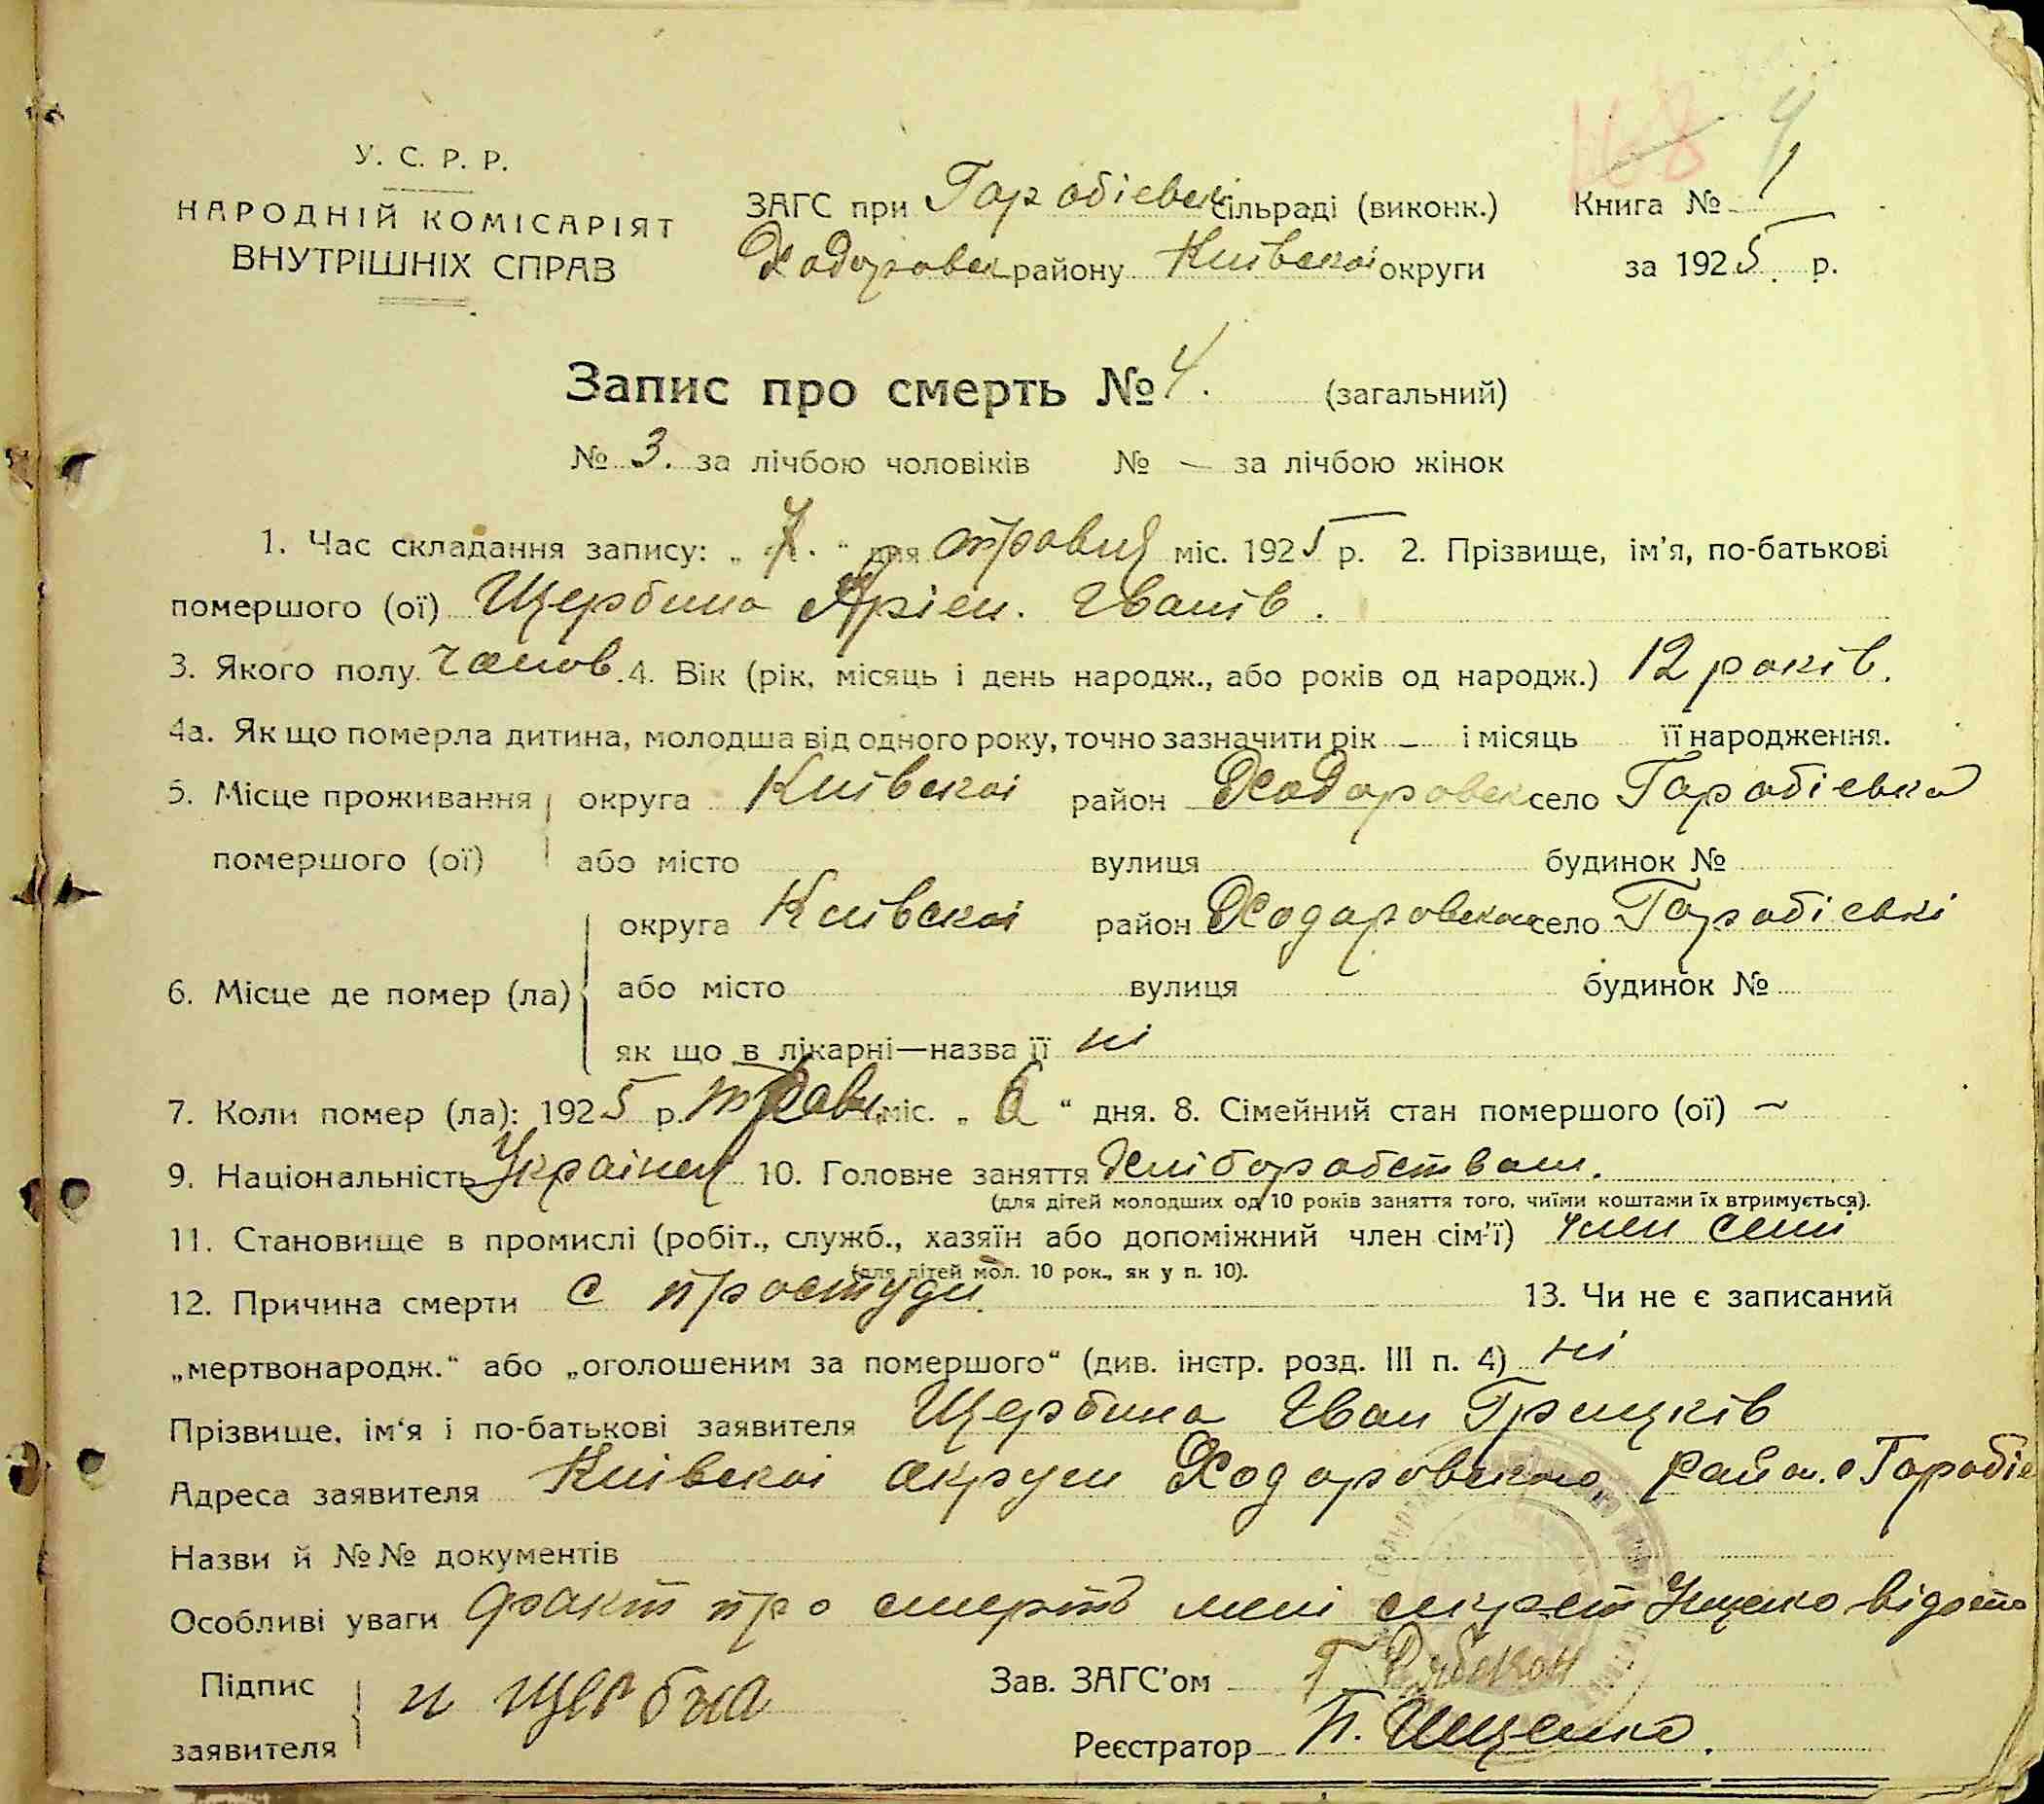 168 4
У. С. Р. Р.
НАРОДНІЙ КОМІСАРІЯТ
ВНУТРІШНІХ СПРАВ
ЗАГС при Горобіевск сільраді (виконк.)
Ходоровск району Київскоі округи
Книга № 1
за 1925 р.
Запис про смерть № 4. (загальний)
№ 3. за лічбою чоловіків № — за лічбою жінок
1. Час складання запису: „ 7. “ дня травня міс. 1925 р. 2. Прізвище, ім’я, по-батькові
помершого (ої) Щербина Іванів.
3. Якого полу чолов. 4. Вік (рік, місяць і день народж., або років од народж.) 12 років.
4а. Як що померла дитина, молодша від одного року, точно зазначити рік — і місяць її народження.
5. Місце проживання округа Київскоі район Ходоровск село Горобіевка
помершого (ої) або місто вулиця будинок №
округа Київскоі район Ходоровском село Горобіевкі
6. Місце де помер (ла) або місто вулиця будинок №
як що в лікарні—назва її ні
7. Коли помер (ла): 1925 р. травн. міс. „ 6 “ дня. 8. Сімейний стан помершого (ої) ~
9. Національність Украінец 10. Головне заняття Хліборобством.
(для дітей молодших од 10 років заняття того, чиїми коштами їх втримується).
11. Становище в промислі (робіт., служб., хазяїн або допоміжний член сім’ї) член семі
(для дітей мол. 10 рок., як у п. 10).
12. Причина смерти с простуди. 13. Чи не є записаний
„мертвонародж.“ або „оголошеним за помершого“ (див. інстр. розд. III п. 4) ні
Прізвище, ім‘я і по-батькові заявителя Щербина Іван Грицків
Адреса заявителя Київскоі округи Ходоровского район. с Горобіе
Назви й №№ документів
Особливі уваги факт про смерть мені секрет Ищенко відомо
Підпис заявителя и щербна
Зав. ЗАГС’ом
Реєстратор П. Ищенко.